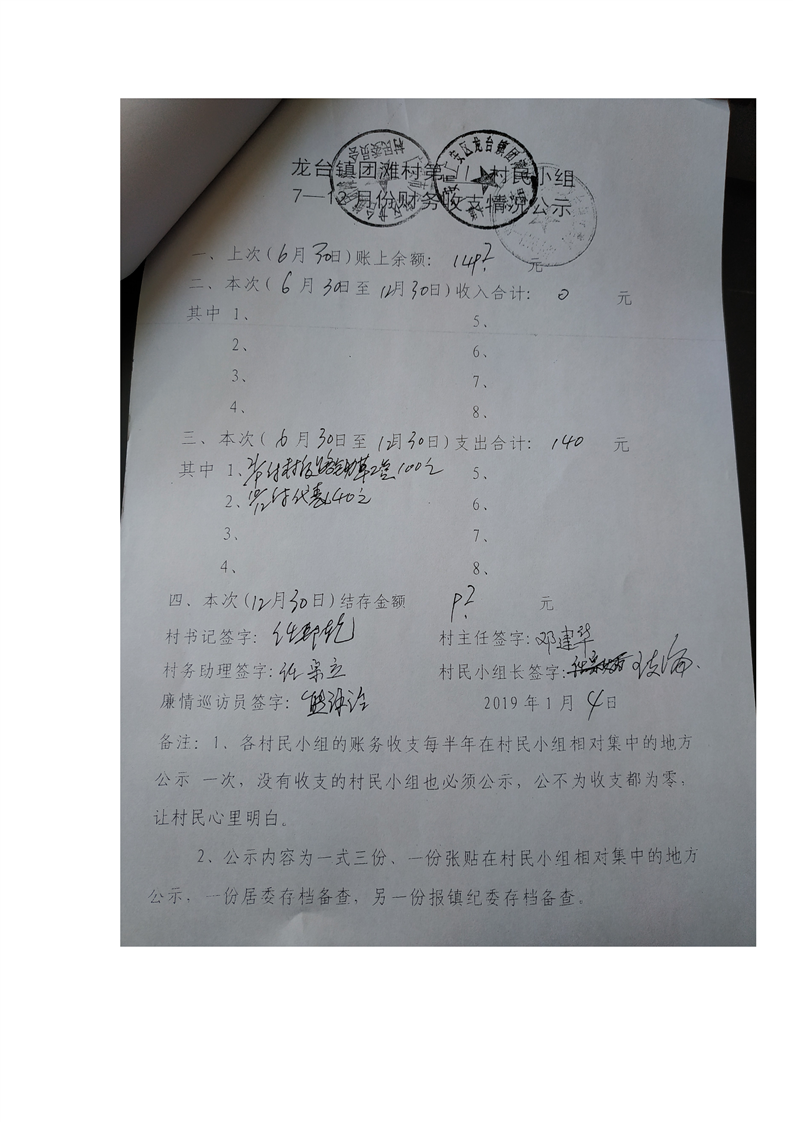 龙台镇团滩村第11村民小组
7—12月份财务收支情况公示
一、上次(6月30日)账上余额: 149.2 元
二、本次(6月30日至12月30日)收入合计: 0 元
其中 1、 5、
2、 6、
3、 7、
4、 8、
三、本次(6月30日至12月30日)支出合计: 140 元
其中 1、 100元 5、
2、付代表40元 6、
3、 7、
4、 8、
四、本次(12月30日)结存金额 9.2 元
村书记签字: 村主任签字:邓建华
村务助理签字:任荣立 村民小组长签字:
廉情巡访员签字: 2019年1月4日
备注:1、各村民小组的账务收支每半年在村民小组相对集中的地方
公示 一次,没有收支的村民小组也必须公示,公不为收支都为零,
让村民心里明白。
2、公示内容为一式三份、一份张贴在村民小组相对集中的地方
公示,一份居委存档备查,另一份报镇纪委存档备查。